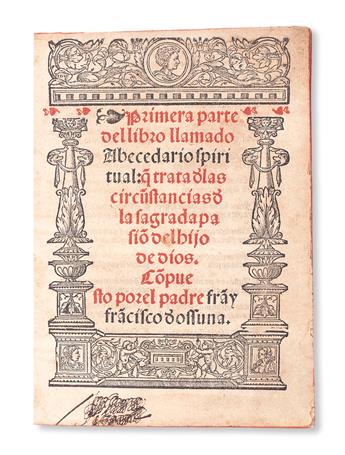 Primera parte
del libro llamado
Abecedario spiri
tual: q̃ trata d̓las
circũstancias d̓
la sagrada pa
siõ del hijo
de dios.
Cõpue
sto por el padre fray
frãcisco d̓ ossuna.